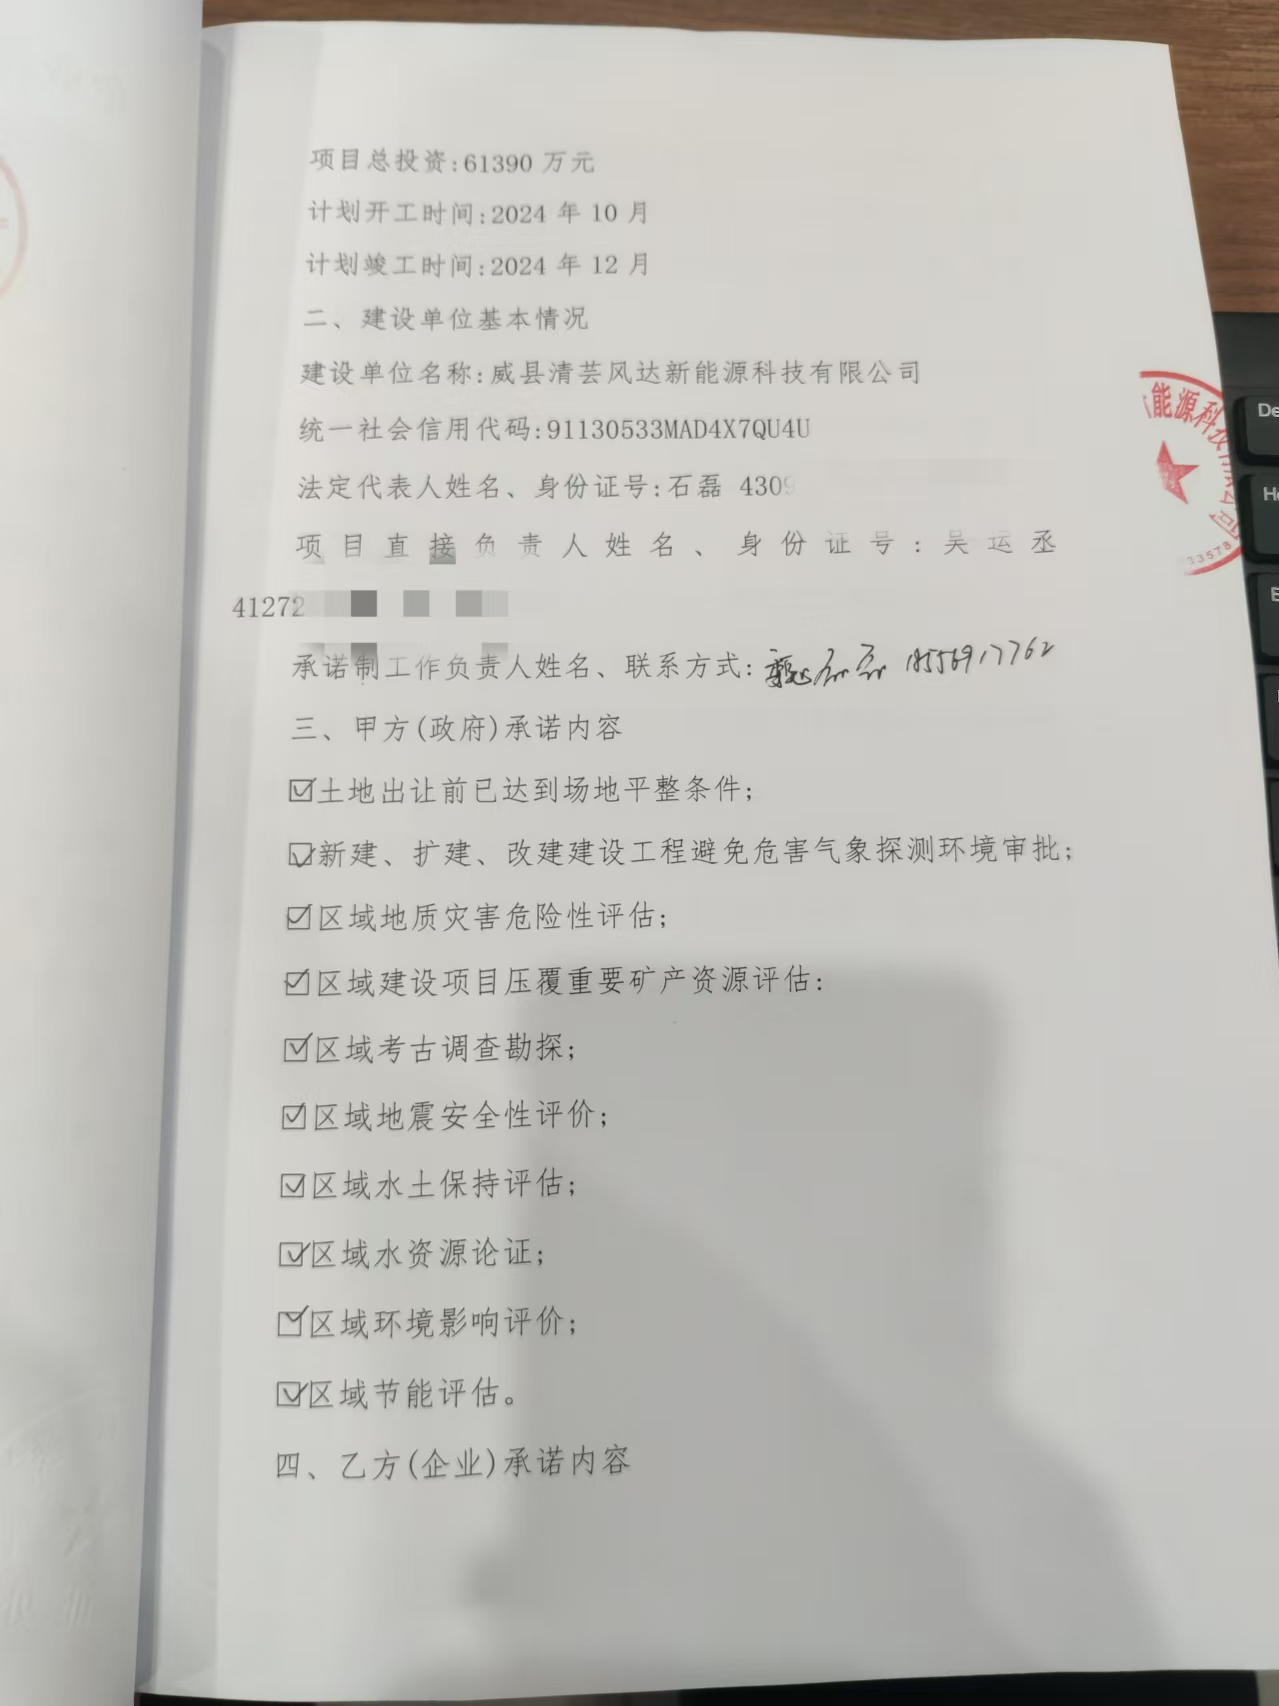 项目总投资:61390 万元
计划开工时间:2024 年 10 月
计划竣工时间:2024 年 12 月
二、建设单位基本情况
建设单位名称:威县清芸风达新能源科技有限公司
统一社会信用代码:91130533MAD4X7QU4U
法定代表人姓名、身份证号:石磊 4309
项目直接负责人姓名、身份证号:吴运丞
41272
承诺制工作负责人姓名、联系方式: 18556917762
三、甲方(政府)承诺内容
☑土地出让前已达到场地平整条件;
☑新建、扩建、改建建设工程避免危害气象探测环境审批;
☑区域地质灾害危险性评估;
☑区域建设项目压覆重要矿产资源评估:
☑区域考古调查勘探;
☑区域地震安全性评价;
☑区域水土保持评估;
☑区域水资源论证;
☑区域环境影响评价;
☑区域节能评估。
四、乙方(企业)承诺内容
能源科技有限公司
33578
De